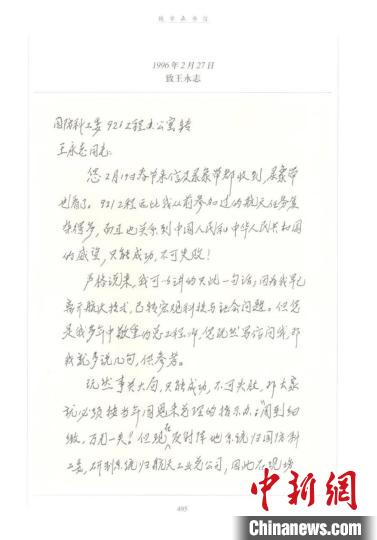 钱学森书信
1996年2月27日
致王永志
国防科工委921工程办公室转
王永志同志:
您2月19日春节来信及录象带都收到,录象带
也看了。921工程远比我从前参加过的航天任务复
杂得多,而且也关系到中国人民和中华人民共和国
的威望,只能成功,不可失败!
严格说来,我可以讲的只此一句话;因为我早已
离开航天技术,已转宏观科技与社会问题。但您
是我多年中敬重的总工程师,您既然写信问我,那
我就多说几句,供参考。
既然事关大局,只能成功,不可失败,那大家
就必须按当年周恩来总理的指示办:“周到细
致,万无一失”!但现在发射阵地系统归国防科
工委,研制系统归航天工业总公司,因此在现场
495
中新网
WWW.CHINANEWS.COM